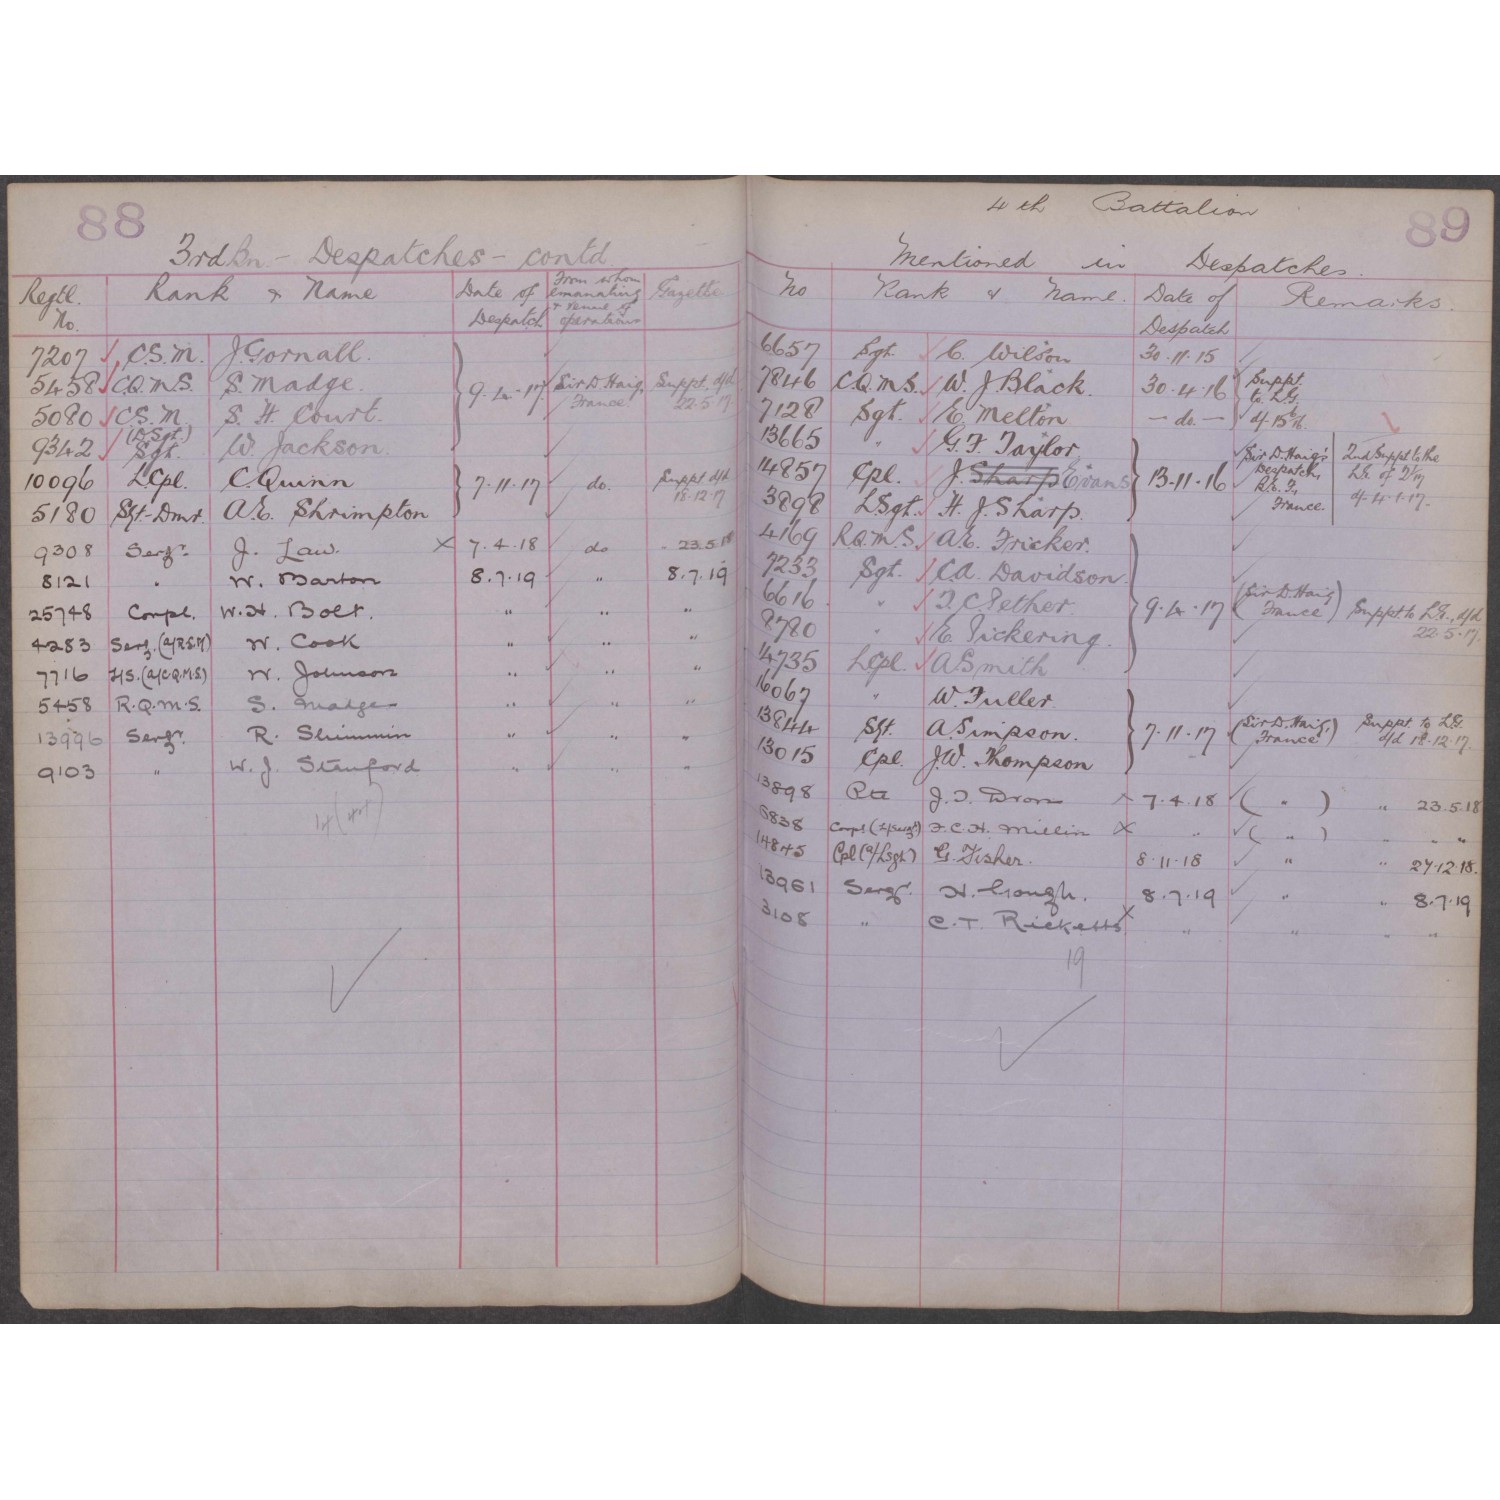 88
3rd Bn. - Despatches - contd
Regtl. No. Rank & Name Date of Despatch From whom emanating & venue of operations Gazette
7207 C.S.M. J. Gornall.
5458 C.Q.M.S. S. Madge. 9.4.17 Sir D. Haig, France. Suppt. d/d 22.5.17
5080 C.S.M. S. H. Court.
9342 (D. Sgt.) Sgt. W. Jackson.
10096 L.Cpl. C. Quinn 7.11.17 do. Suppt d/d 18.12.17
5180 Sgt-Dmr. A.E. Shrimpton
9308 Sergt. J. Law. X 7.4.18 do 23.5.18
8121 " W. Barton 8.7.19 " 8.7.19
25748 Corpl. W.H. Bolt. " " "
4283 Serg. (a/R.S.M) W. Cook " " "
7716 L/S. (a/C.Q.M.S) W. Johnson " " "
5458 R.Q.M.S. S. Madge " " "
13996 Sergt. R. Shimmin " " "
9103 " W. J. Stanford " " "
14
89
4th Battalion
Mentioned in Despatches.
No Rank & Name. Date of Despatch Remarks.
6657 Sgt. C. Wilson 30.11.15
7846 C.Q.M.S. W. J. Black. 30.4.16 Suppt. to L.G.
7128 Sgt. E. Melton — do. — d/-15.6.16.
13665 " G. F. Taylor
14857 Cpl. J. Sharp Evans 13.11.16 Sir D. Haig's Despatch, B.E.F., France. 2nd Suppt to the L.G. of 2/1/17 d/-4.1.17.
3898 L.Sgt. H. J. Sharp.
4169 R.Q.M.S. A.E. Fricker.
7233 Sgt. C.A. Davidson.
6616 " F. C. Pether. 9.4.17 (Sir D. Haig, France) Suppt to L.G., d/d 22.5.17.
8780 " E. Pickering.
14735 L.Cpl. A. Smith
16067 " W. Fuller.
13844 Sgt. A. Simpson. 7.11.17 (Sir D. Haig, France) Suppt to L.G. d/d 18.12.17.
13015 Cpl. J.W. Thompson
13898 Pte J. F. Dron X 7.4.18 ( " ) " 23.5.18
6838 Corpl (L/Sergt) F.C.H. Millin X " ( " ) " " "
14845 Cpl (a/L.Sgt) G. Fisher. 8.11.18 " " 27.12.18.
13961 Sergt. H. Gough. 8.7.19 " " 8.7.19
3108 " C.T. Ricketts X " " " "
19